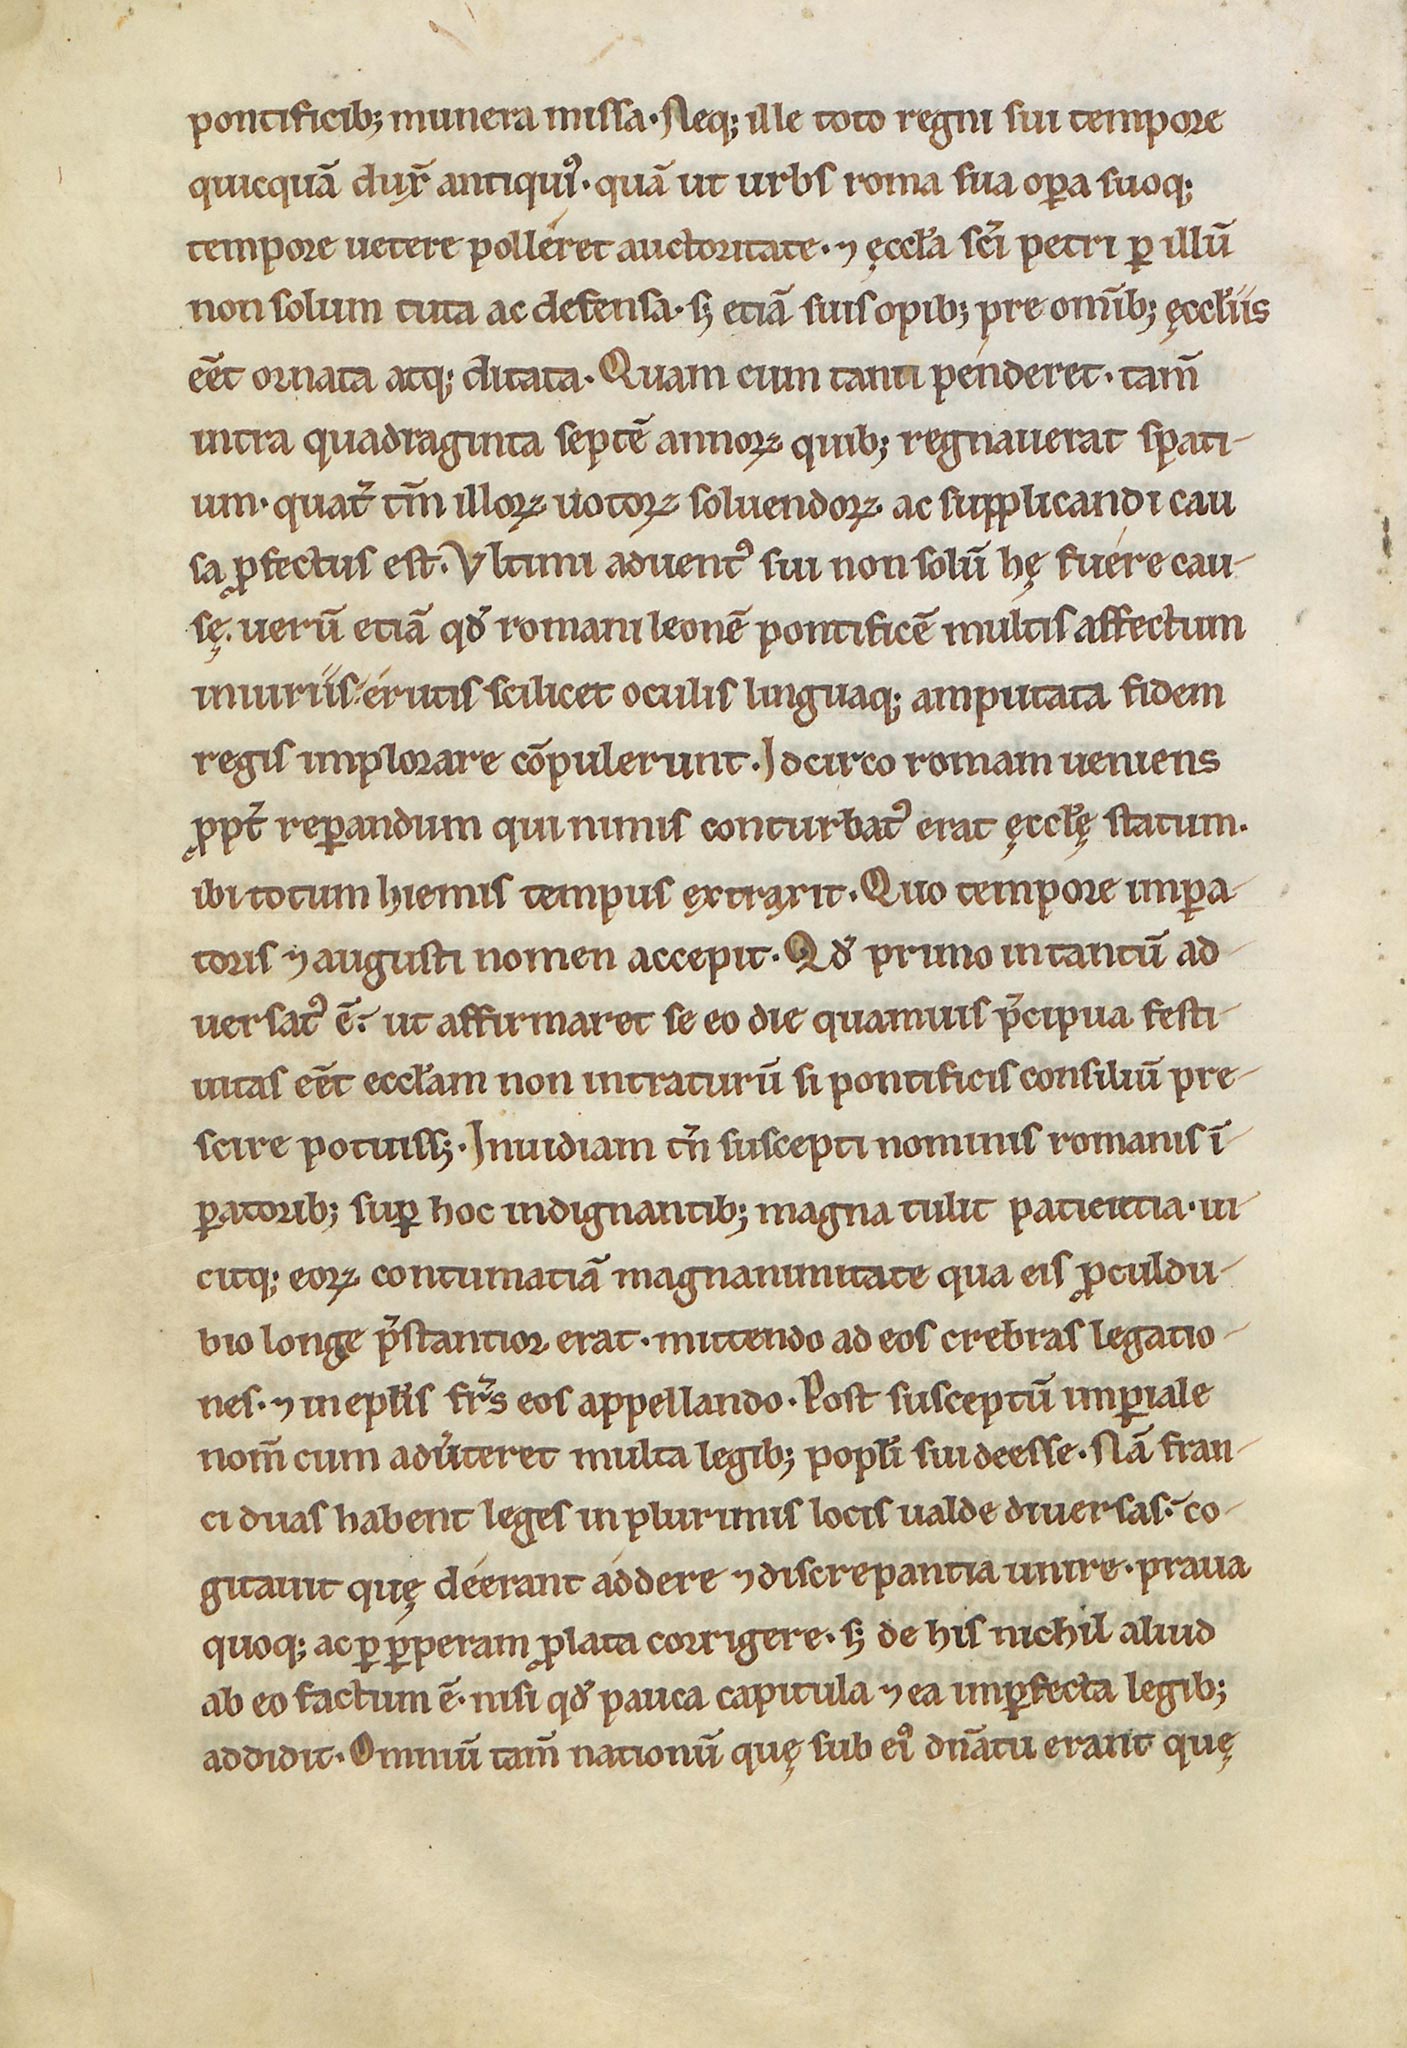 pontificib; munera missa. Neq; ille toto regni sui tempore
quicquā dux̄ antiqui᾿. quā ut urbs roma sua oꝑa suoq;
tempore uetere polleret auctoritate. ⁊ ęccła sc̄i petri ꝑ illū
non solum tuta ac defensa. s; etiā suis opib; pre omīb; ęccłiis
eēt ornata atq; ditata. Quam cum tanti penderet. tam̄
intra quadraginta septē annoꝝ quib; regnauerat spati-
um. quat̄ tm̄ illoꝝ uotoꝝ soluendoꝝ. ac supplicandi cau
sa ꝓfectus est. Vltimi aduent᾿ sui non solū hę fuére cau-
sę. uerū etiā qđ romani leonē pontificē multis affectum
iniuriis. érutis scilicet oculis linguaq; amputata fidem
regis implorare cōpulerunt. Idcirco romam ueniens
ꝓpt̄ reꝑandum qui nimis conturbat᾿ erat ęccłę statum.
ibi totum hiemis tempus extraxit. Quo tempore imꝑa-
toris ⁊ augusti nomen accepit. Qđ primo in tantū ad-
uersat᾿ ē. ut affirmaret se eo die quamuis p̄cipua festi-
uitas eēt eccłam non intraturū si pontificis consiliū pre-
scire potuiss;. Inuidiam tn̄ suscepti nominis romanis ī-
ꝑatorib; suꝑ hoc indignantib; magna tulit patientia. ui-
citq; eoꝝ contumatiā magnanimitate qua eis ꝓculdu-
bio longe p̄stantior erat. mittendo ad eos crebras legatio-
nes. ⁊ in epłis fr̄s eos appellando. Post susceptū imꝑiale
nom̄ cum adu᾿teret multa legib; popłi sui deesse. Nā fran-
ci duas habent leges in plurimis locis ualde diuersas. co-
gitauit quę déerant áddere ⁊ discrepantia unire. praua
quoq; ac ꝑ ꝑperam ꝓlata corrigere. s; de his nichil aliud
ab eo factum ē. nisi qđ pauca capitula ⁊ ea imꝑfecta legib;
addidit. Omniū tam̄ nationū quę sub ei᾿ dn̄atu erant quę